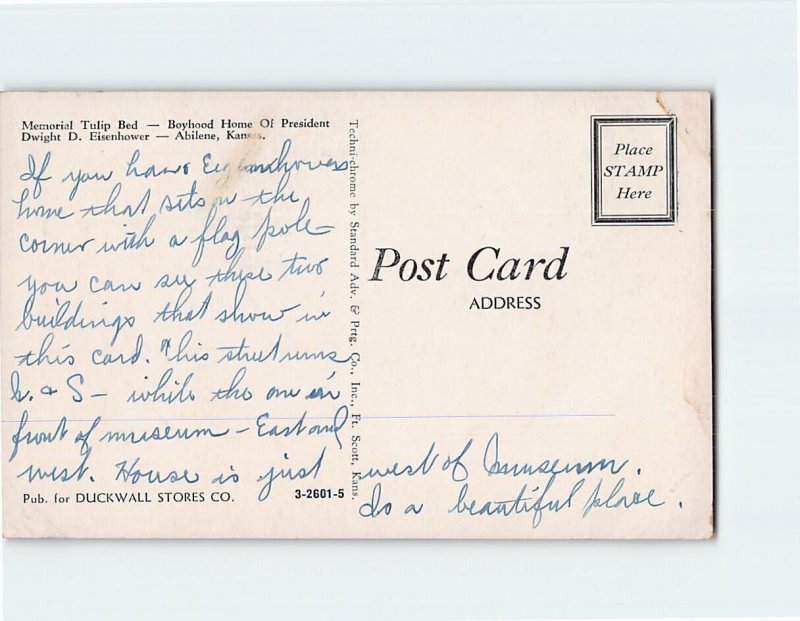 Memorial Tulip Bed — Boyhood Home Of President
Dwight D. Eisenhower — Abilene, Kansas.
If you have
home that sits on the
corner with a flag pole –
you can see these two
buildings that show in
this card. This street runs
N. & S – while the one in
front of museum – East and
west. House is just west of Museum.
Is a beautiful place.
Pub. for DUCKWALL STORES CO. 3-2601-5
Techni-chrome by Standard Adv. & Prtg. Co., Inc., Ft. Scott, Kans.
Place
STAMP
Here
Post Card
ADDRESS